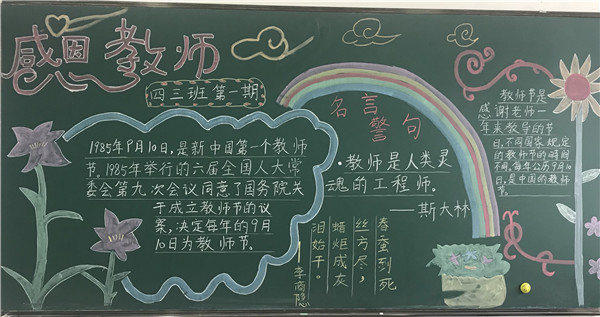 感恩教师
四三班第一期
1985年9月10日,是新中国第一个教师
节,1985年举行的六届全国人大常
委会第九次会议同意了国务院关
于成立教师节的议
案,决定每年的9月
10日为教师节。
名言
警句
·教师是人类灵
魂的工程师。
——斯大林
春蚕到死
丝方尽,
蜡炬成灰
泪始干。
——李商隐
教师节是
感谢老师一
年来教导的节
日,不同国家规定
的教师节的时间
不同,每年公历9月10
日,是中国的教师
节。